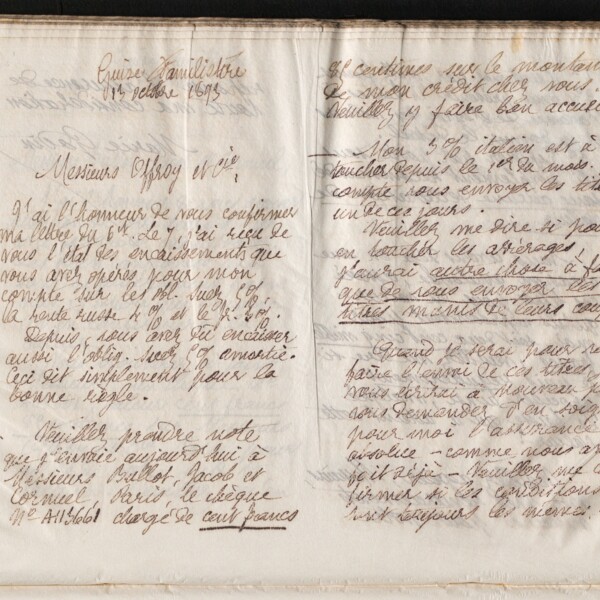 Guise Familistère
13 octobre 1893
Messieurs Offroy et Cie,
J'ai l'honneur de vous confirmer
ma lettre du 6 ct. Le 7, j'ai reçu de
vous l'état des encaissements que
vous avez opérés pour mon
compte sur les obl. Suez 5%,
la rente russe 4% et le
Depuis, vous avez dû encaisser
aussi l'oblig. Suez 5% amortie.
Ceci dit simplement pour la
bonne règle.
Veuillez prendre note
que j'envoie aujourd'hui à
Messieurs Bullot, Jacob et
Cormuel, Paris, le chèque
No A113661 chargé de cent francs
centimes sur le montan
de mon crédit chez vous.
Veuillez y faire bon accue
Mon 3% italien est à
toucher depuis le 1er du mois.
compte vous envoyer les tit
un de ces jours.
Veuillez me dire si pou
en toucher les arrérages,
j'aurai autre chose à f
que de vous envoyer les
titres munis de leurs cou
Quand je serai pour v
faire l'envoi de ces titres,
vous écrirai à nouveau p
vous demander d'en soig
pour moi l'assurance
absolue - comme vous av
fait déjà - Veuillez me c
firmer si les conditions
sont toujours les mêmes.